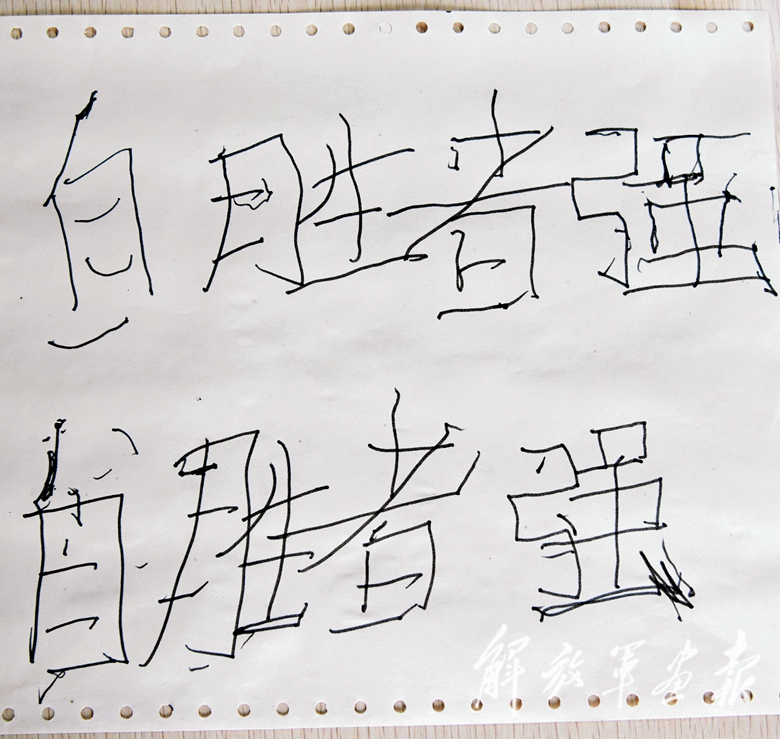 自胜者强
自胜者强
解放军画报